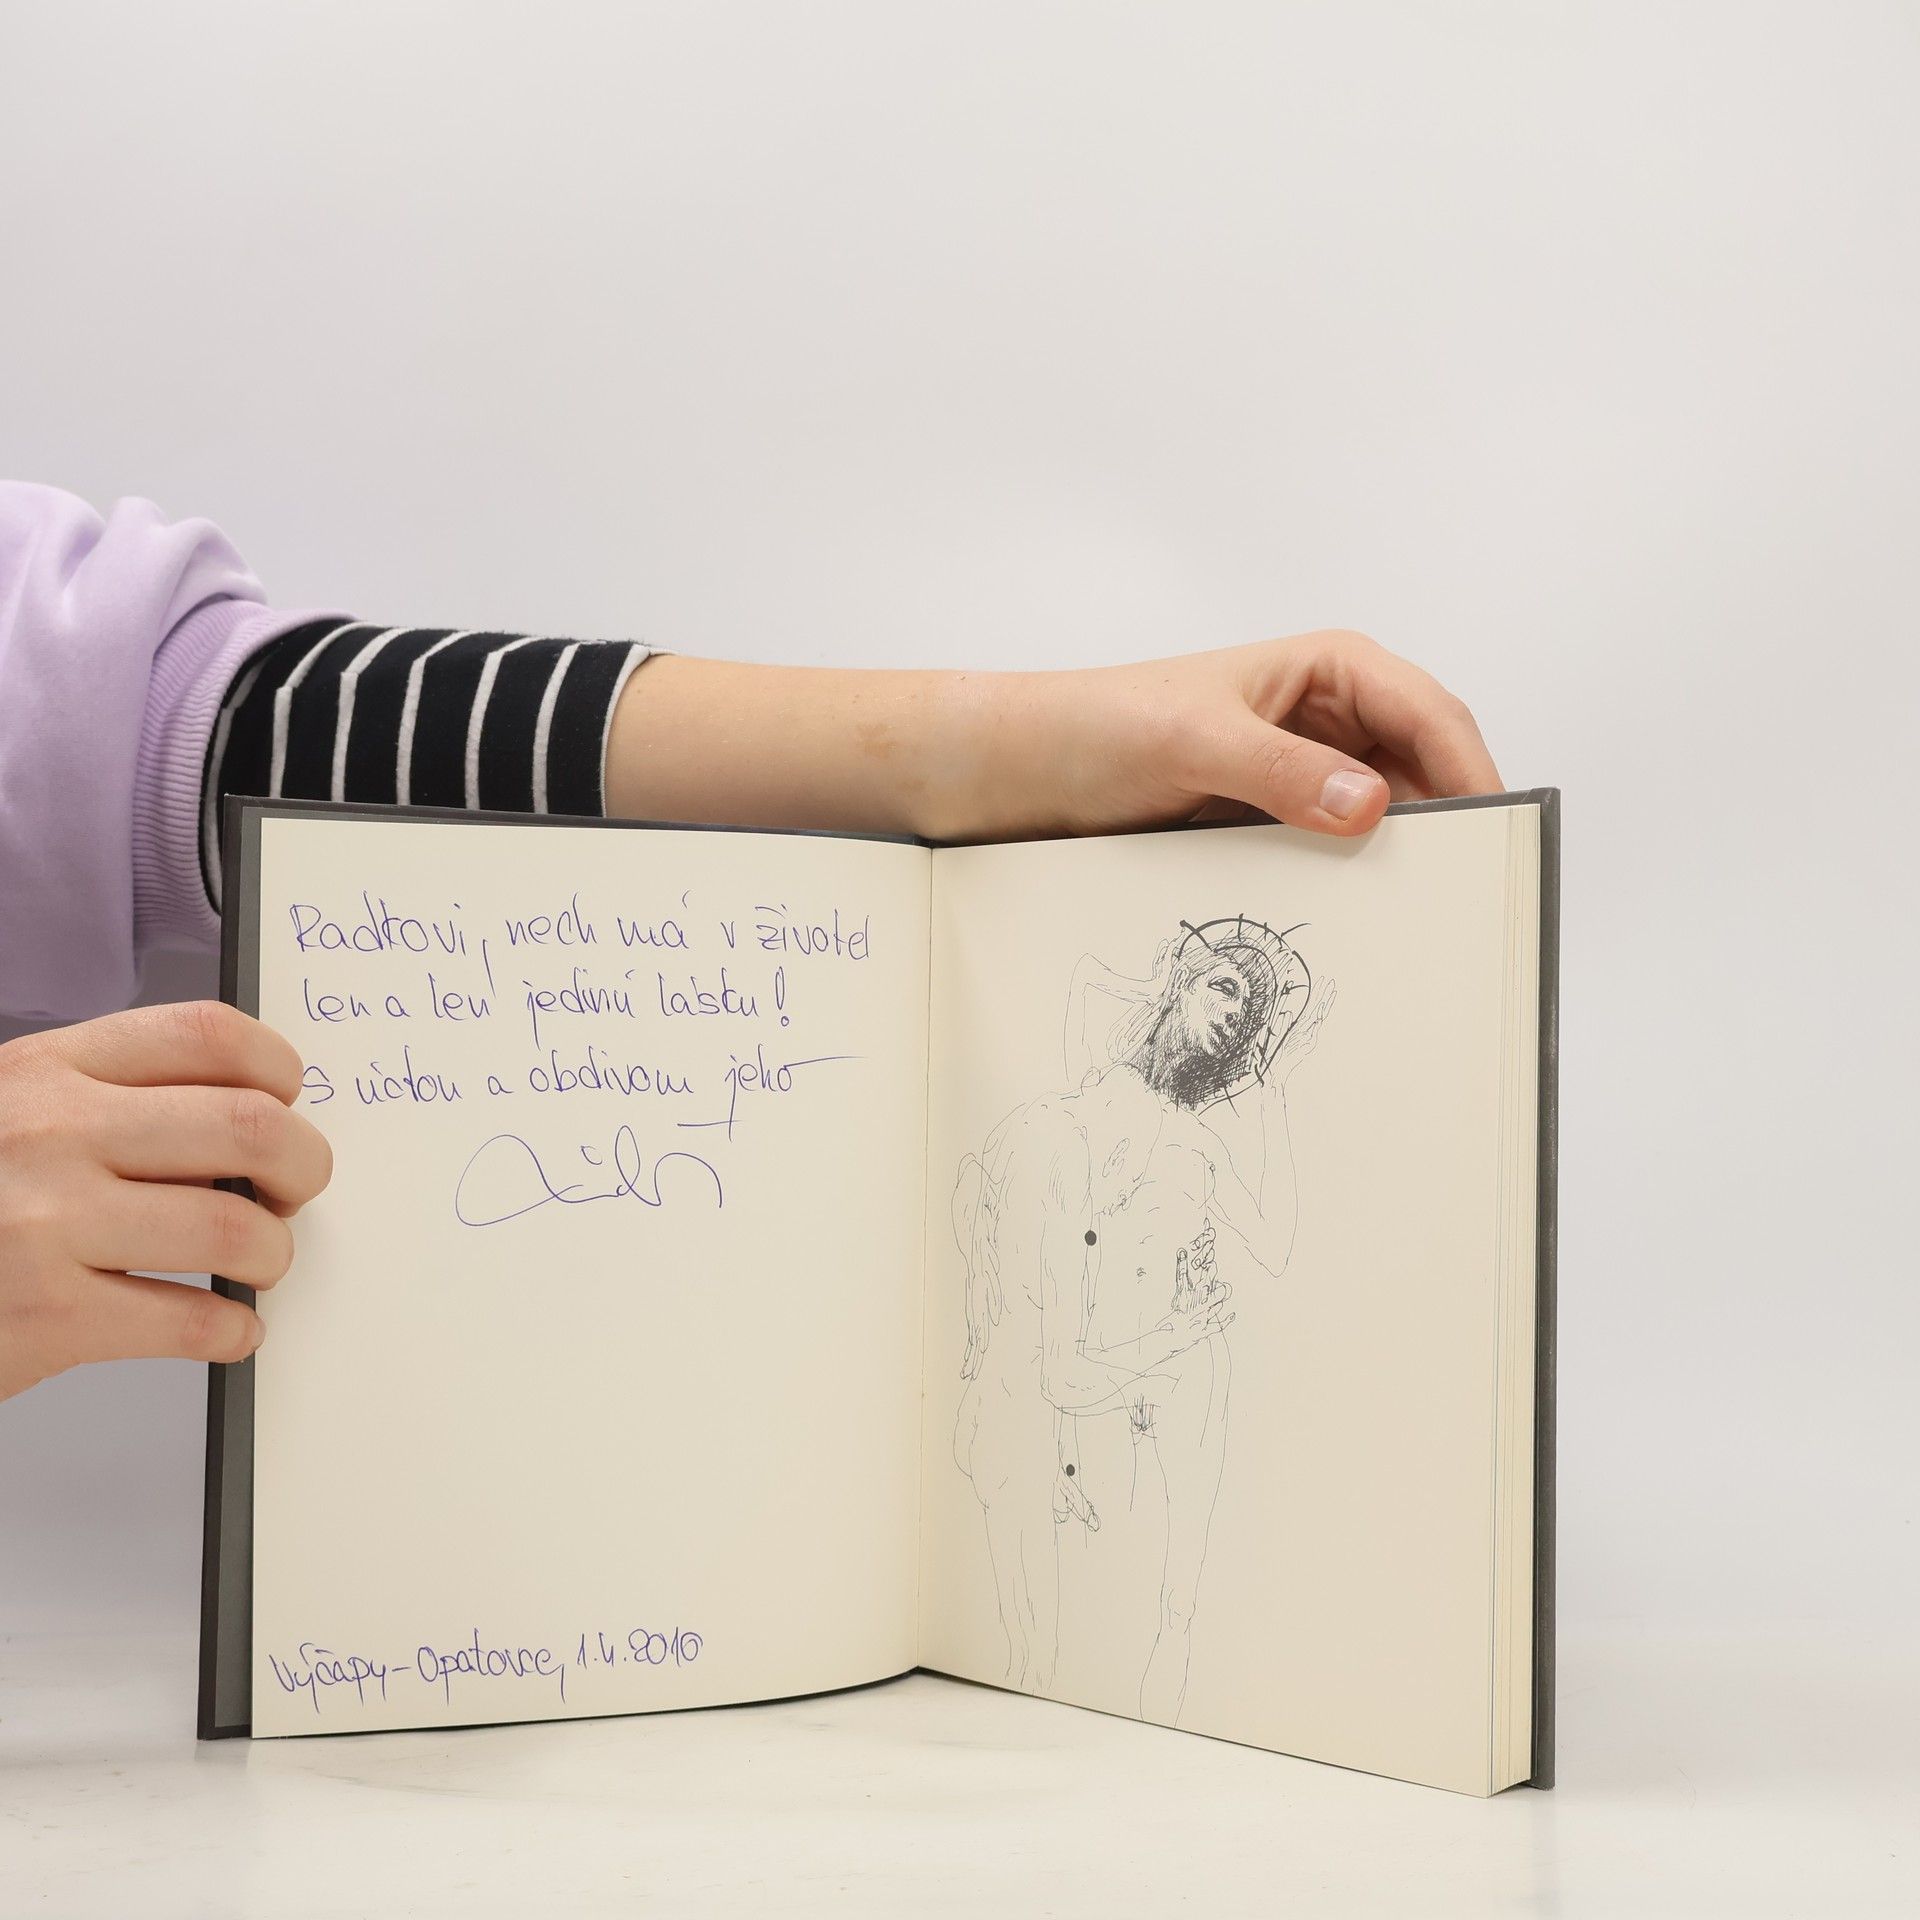 Radkovi, nech má v živote
len a len jedinú lásku!
S úctou a obdivom jeho
Výčapy-Opatovce, 1.4.2010